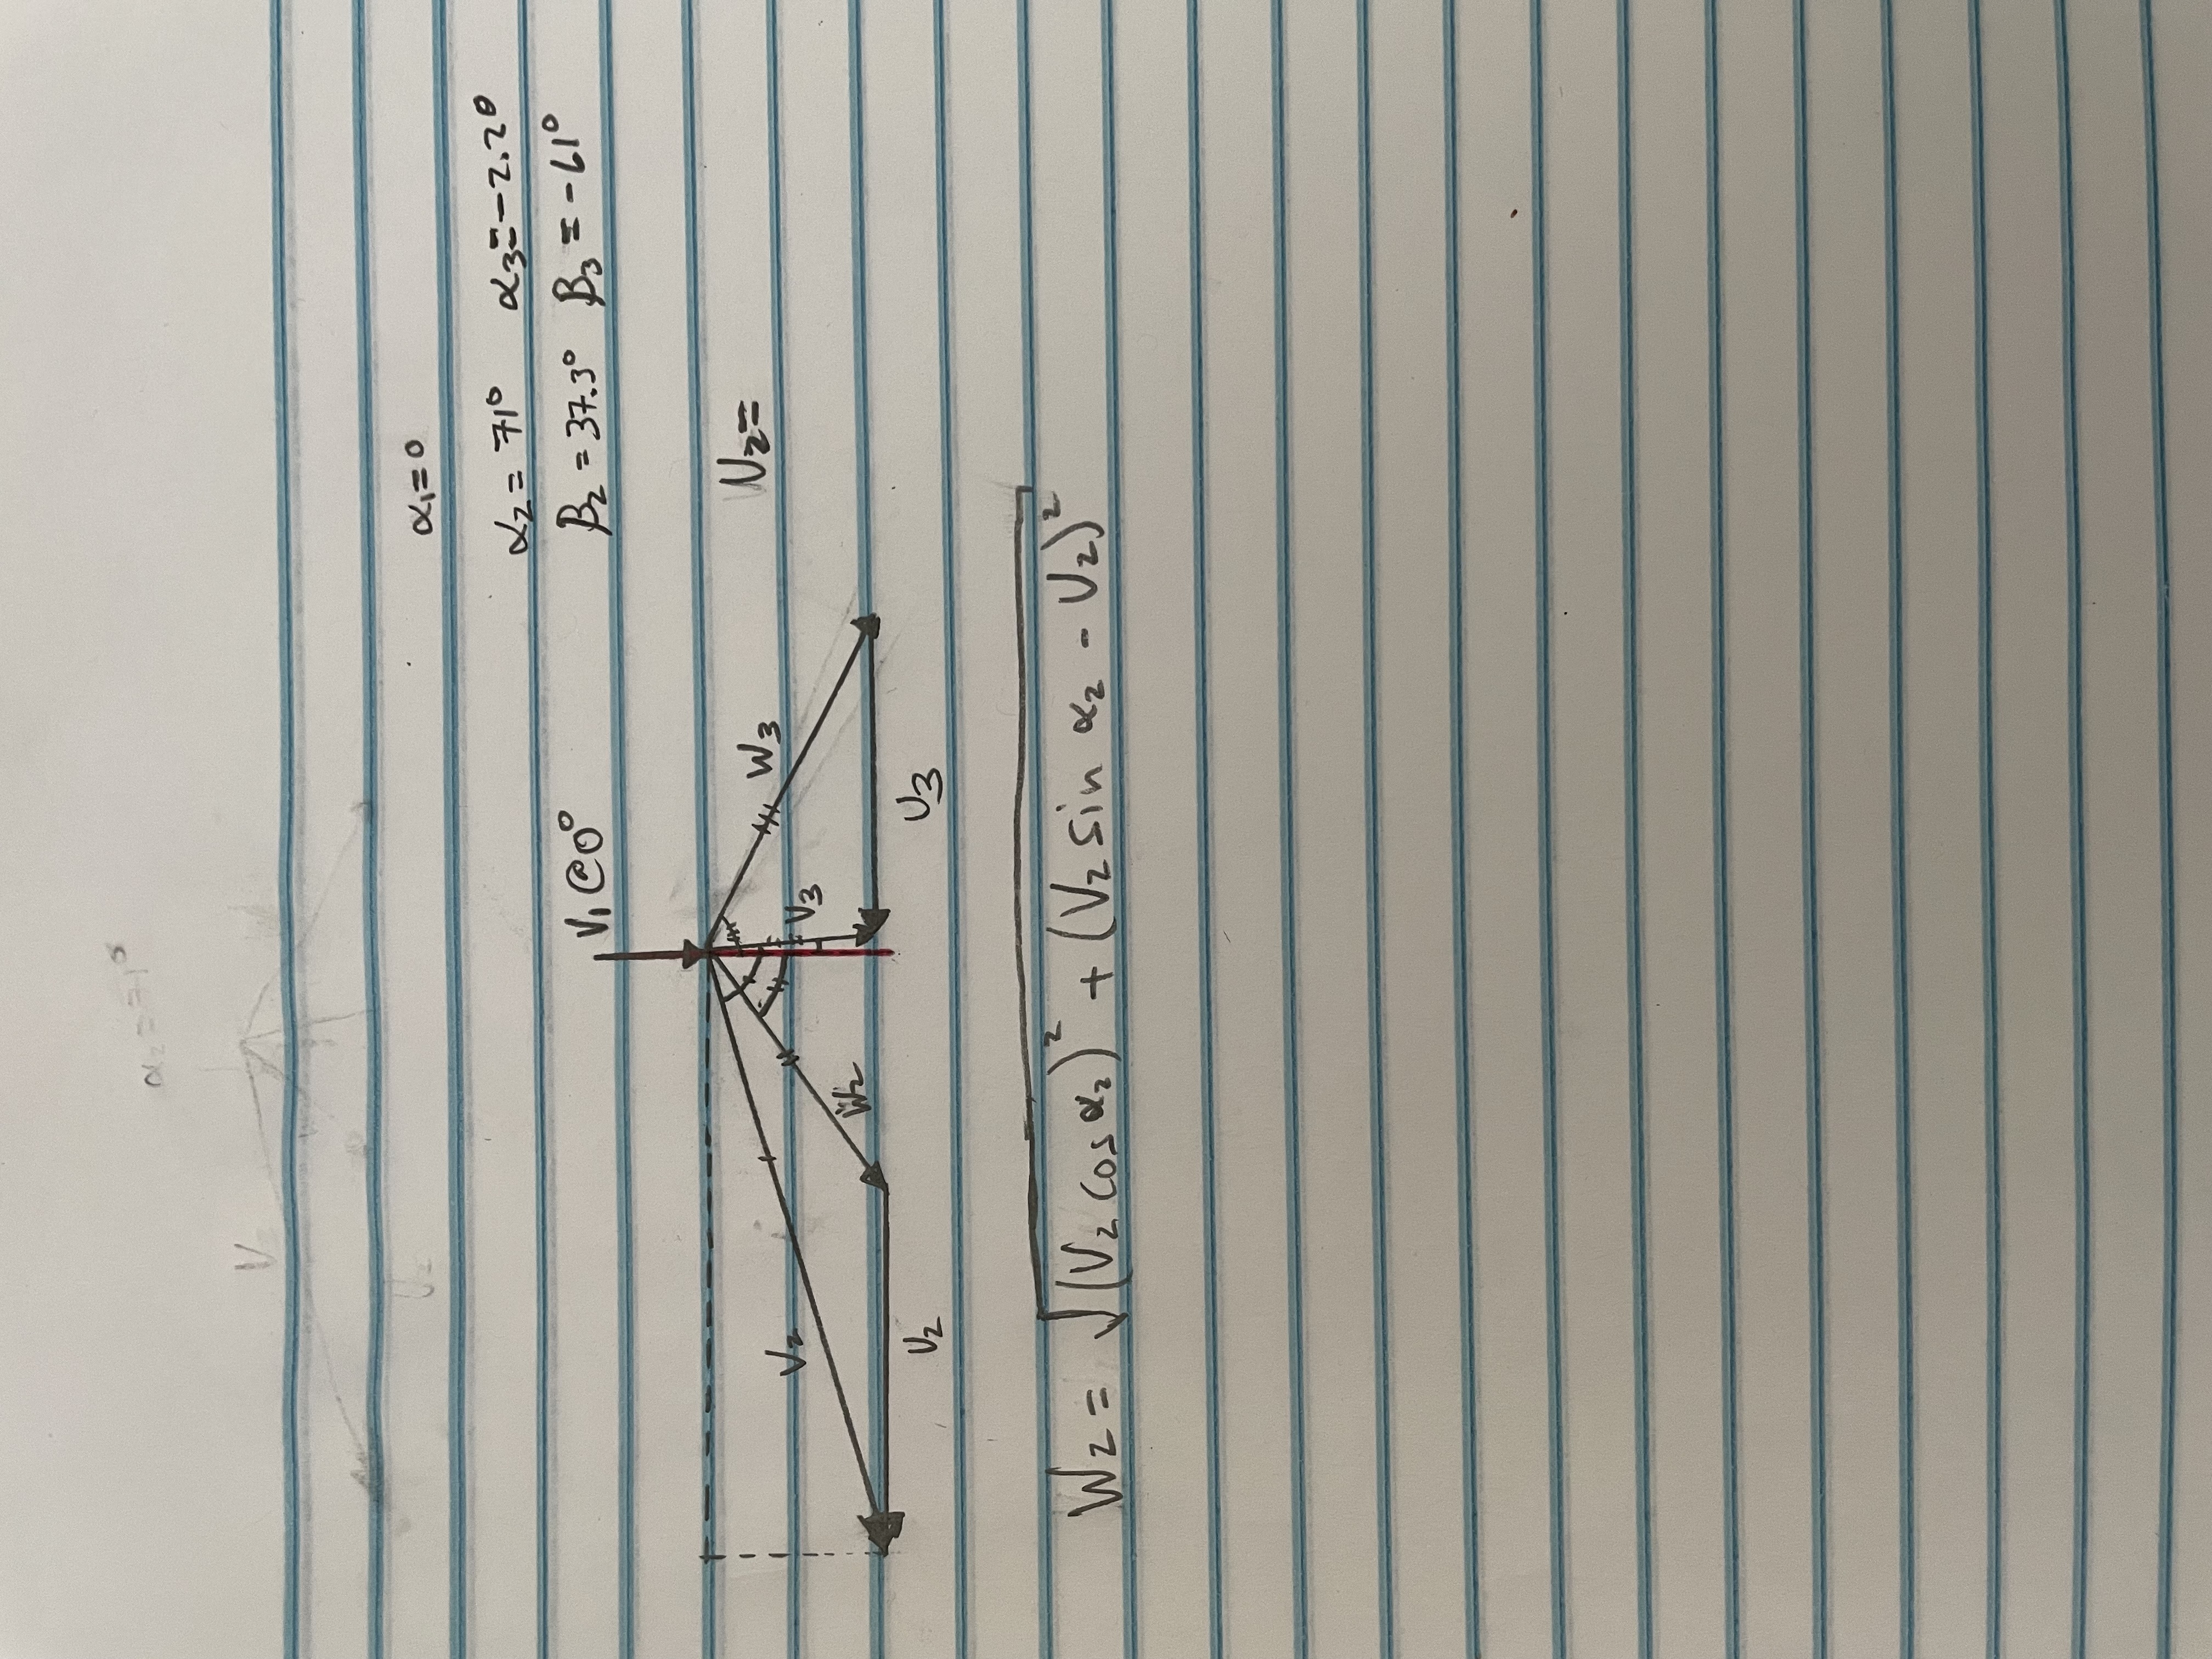 α₂ = 71°
V
U₂
α₁ = 0
α₂ = 71° α₃ = -2.2°
β₂ = 37.3° β₃ = -61°
V₁ @ 0°
U₂ =
W₃
V₂
V₃
W₂
U₂
U₃
W₂ = √((V₂ cos α₂)² + (V₂ sin α₂ - U₂)²)